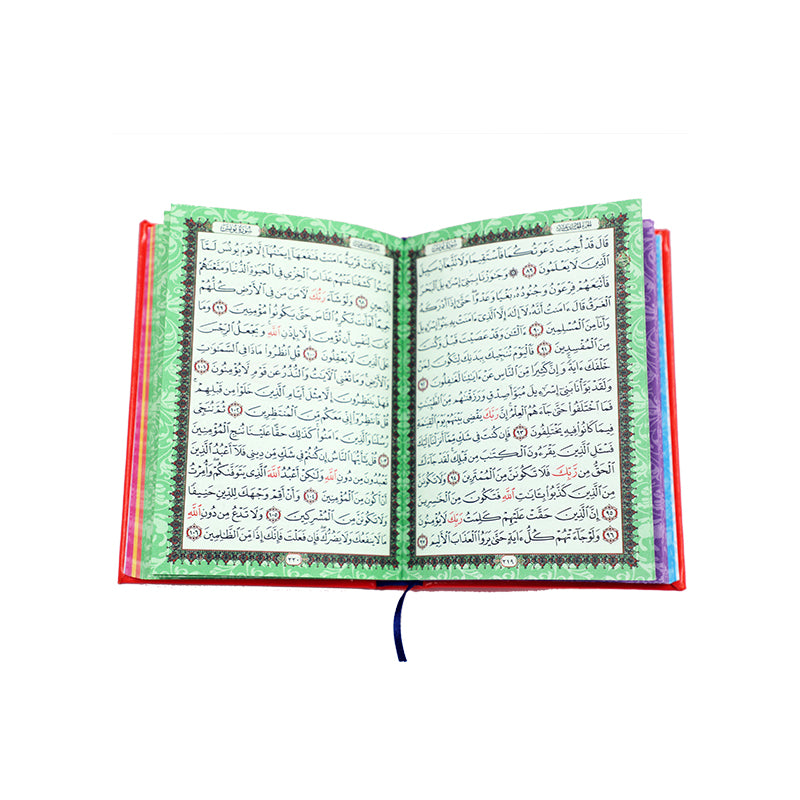 الجزء الحادي عشر
سورة يونس
قَالَ قَدْ أُجِيبَت دَّعْوَتُكُمَا فَٱسْتَقِيمَا وَلَا تَتَّبِعَآنِّ سَبِيلَ
ٱلَّذِينَ لَا يَعْلَمُونَ ٨٩ وَجَٰوَزْنَا بِبَنِىٓ إِسْرَٰٓءِيلَ ٱلْبَحْرَ
فَأَتْبَعَهُمْ فِرْعَوْنُ وَجُنُودُهُۥ بَغْيًا وَعَدْوًا حَتَّىٰٓ إِذَآ أَدْرَكَهُ
ٱلْغَرَقُ قَالَ ءَامَنتُ أَنَّهُۥ لَآ إِلَٰهَ إِلَّا ٱلَّذِىٓ ءَامَنَتْ بِهِۦ بَنُوٓا۟ إِسْرَٰٓءِيلَ
وَأَنَا۠ مِنَ ٱلْمُسْلِمِينَ ٩٠ ءَآلْـَٰٔنَ وَقَدْ عَصَيْتَ قَبْلُ وَكُنتَ
مِنَ ٱلْمُفْسِدِينَ ٩١ فَٱلْيَوْمَ نُنَجِّيكَ بِبَدَنِكَ لِتَكُونَ لِمَنْ
خَلْفَكَ ءَايَةً وَإِنَّ كَثِيرًا مِّنَ ٱلنَّاسِ عَنْ ءَايَٰتِنَا لَغَٰفِلُونَ ٩٢
وَلَقَدْ بَوَّأْنَا بَنِىٓ إِسْرَٰٓءِيلَ مُبَوَّأَ صِدْقٍ وَرَزَقْنَٰهُم مِّنَ ٱلطَّيِّبَٰتِ
فَمَا ٱخْتَلَفُوا۟ حَتَّىٰ جَآءَهُمُ ٱلْعِلْمُ إِنَّ رَبَّكَ يَقْضِى بَيْنَهُمْ يَوْمَ ٱلْقِيَٰمَةِ
فِيمَا كَانُوا۟ فِيهِ يَخْتَلِفُونَ ٩٣ فَإِن كُنتَ فِى شَكٍّ مِّمَّآ أَنزَلْنَآ إِلَيْكَ
فَسْـَٔلِ ٱلَّذِينَ يَقْرَءُونَ ٱلْكِتَٰبَ مِن قَبْلِكَ لَقَدْ جَآءَكَ
ٱلْحَقُّ مِن رَّبِّكَ فَلَا تَكُونَنَّ مِنَ ٱلْمُمْتَرِينَ ٩٤ وَلَا تَكُونَنَّ
مِنَ ٱلَّذِينَ كَذَّبُوا۟ بِـَٔايَٰتِ ٱللَّهِ فَتَكُونَ مِنَ ٱلْخَٰسِرِينَ
٩٥ إِنَّ ٱلَّذِينَ حَقَّتْ عَلَيْهِمْ كَلِمَتُ رَبِّكَ لَا يُؤْمِنُونَ
٩٦ وَلَوْ جَآءَتْهُمْ كُلُّ ءَايَةٍ حَتَّىٰ يَرَوُا۟ ٱلْعَذَابَ ٱلْأَلِيمَ ٩٧
٢١٩
الجزء الحادي عشر
سورة يونس
فَلَوْلَا كَانَتْ قَرْيَةٌ ءَامَنَتْ فَنَفَعَهَآ إِيمَٰنُهَآ إِلَّا قَوْمَ يُونُسَ لَمَّآ
ءَامَنُوا۟ كَشَفْنَا عَنْهُمْ عَذَابَ ٱلْخِزْىِ فِى ٱلْحَيَوٰةِ ٱلدُّنْيَا وَمَتَّعْنَٰهُمْ
إِلَىٰ حِينٍ ٩٨ وَلَوْ شَآءَ رَبُّكَ لَـَٔامَنَ مَن فِى ٱلْأَرْضِ كُلُّهُمْ
جَمِيعًا أَفَأَنتَ تُكْرِهُ ٱلنَّاسَ حَتَّىٰ يَكُونُوا۟ مُؤْمِنِينَ ٩٩ وَمَا
كَانَ لِنَفْسٍ أَن تُؤْمِنَ إِلَّا بِإِذْنِ ٱللَّهِ وَيَجْعَلُ ٱلرِّجْسَ
عَلَى ٱلَّذِينَ لَا يَعْقِلُونَ ١٠٠ قُلِ ٱنظُرُوا۟ مَاذَا فِى ٱلسَّمَٰوَٰتِ
وَٱلْأَرْضِ وَمَا تُغْنِى ٱلْـَٔايَٰتُ وَٱلنُّذُرُ عَن قَوْمٍ لَّا يُؤْمِنُونَ ١٠١
فَهَلْ يَنتَظِرُونَ إِلَّا مِثْلَ أَيَّامِ ٱلَّذِينَ خَلَوْا۟ مِن قَبْلِهِمْ
قُلْ فَٱنتَظِرُوٓا۟ إِنِّى مَعَكُم مِّنَ ٱلْمُنتَظِرِينَ ١٠٢ ثُمَّ نُنَجِّى
رُسُلَنَا وَٱلَّذِينَ ءَامَنُوا۟ كَذَٰلِكَ حَقًّا عَلَيْنَا نُنجِ ٱلْمُؤْمِنِينَ
١٠٣ قُلْ يَٰٓأَيُّهَا ٱلنَّاسُ إِن كُنتُمْ فِى شَكٍّ مِّن دِينِى فَلَآ أَعْبُدُ ٱلَّذِينَ
تَعْبُدُونَ مِن دُونِ ٱللَّهِ وَلَٰكِنْ أَعْبُدُ ٱللَّهَ ٱلَّذِى يَتَوَفَّىٰكُمْ وَأُمِرْتُ
أَنْ أَكُونَ مِنَ ٱلْمُؤْمِنِينَ ١٠٤ وَأَنْ أَقِمْ وَجْهَكَ لِلدِّينِ حَنِيفًا
وَلَا تَكُونَنَّ مِنَ ٱلْمُشْرِكِينَ ١٠٥ وَلَا تَدْعُ مِن دُونِ ٱللَّهِ
مَا لَا يَنفَعُكَ وَلَا يَضُرُّكَ فَإِن فَعَلْتَ فَإِنَّكَ إِذًا مِّنَ ٱلظَّٰلِمِينَ ١٠٦
٢٢٠